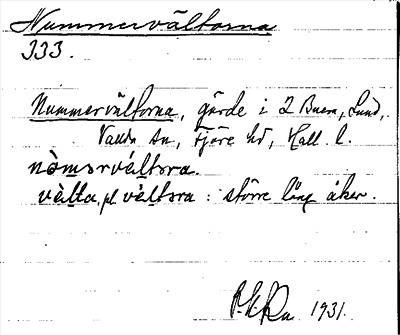 Nummervältorna
333.
Nummervältorna, gärde i 2 Buem, Lund,
sn, Fjäre hd, Hall. l.
nòmərvæ̀ltəra.
vælta, pl væltəra : större lång åker.
1931.